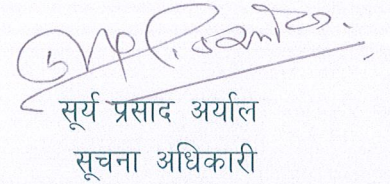 सूर्य प्रसाद अर्याल
सूचना अधिकारी